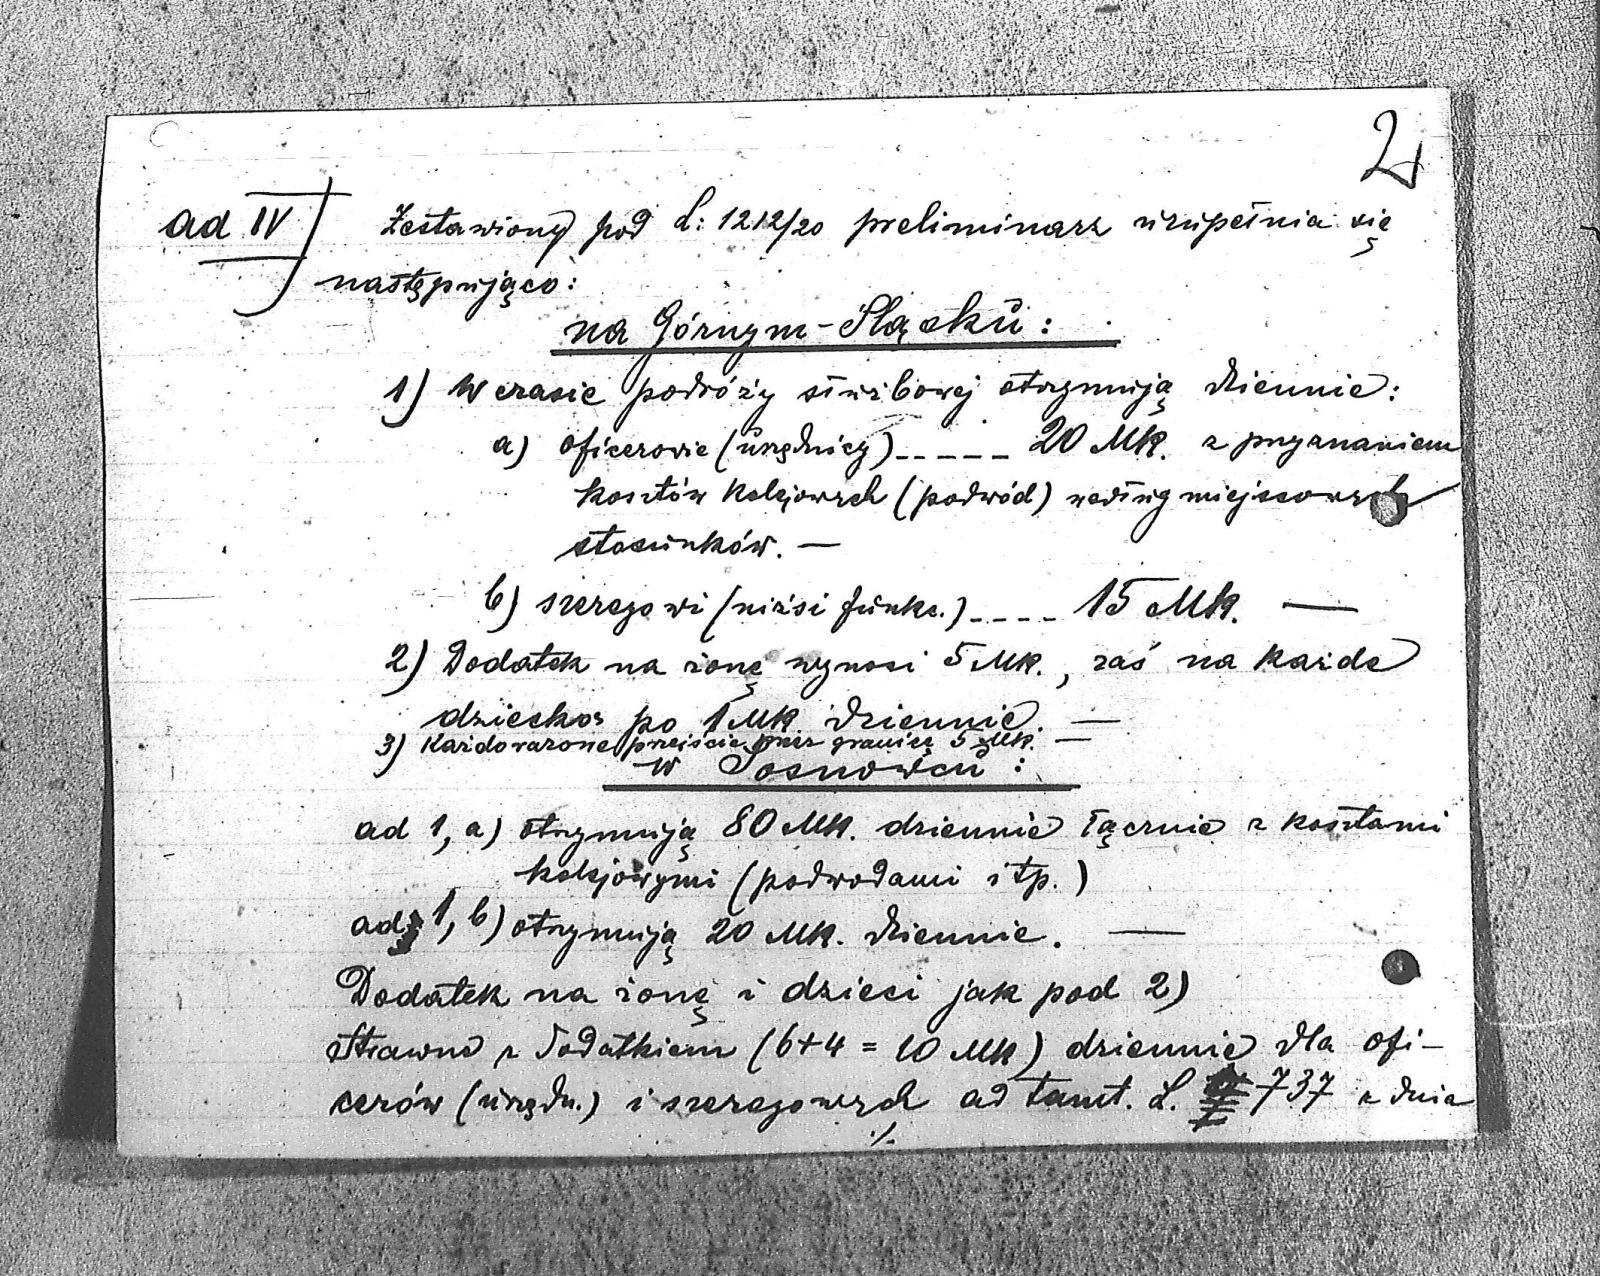 2
ad IV) Zestawiony pod L: 1212/20 preliminarz uzupełnia się
następująco:
na Górnym-Śląsku:
1) W czasie podróży służbowej otrzymują dziennie:
a) oficerowie (urzędnicy) _ _ _ _ _ 20 Mk. z przyznaniem
kosztów kolejowych (podwód) według miejscowych
stosunków. —
b) szeregowi (niżsi funkc.) _ _ _ _ 15 Mk. —
2) Dodatek na żonę wynosi 5 Mk., zaś na każde
dziecko po 1 Mk dziennie. —
3) Każdorazowe przejście przez granicę 5 Mk. —
w Sosnowcu:
ad 1, a) otrzymują 80 Mk. dziennie łącznie z kosztami
kolejowymi (podwodami itp.)
ad 1, b) otrzymują 20 Mk. dziennie. —
Dodatek na żonę i dzieci jak pod 2)
Strawne z dodatkiem (6+4 = 10 Mk) dziennie dla ofi-
cerów (urzędn.) i szeregowych ad tamt. L. 737 z dnia
./.